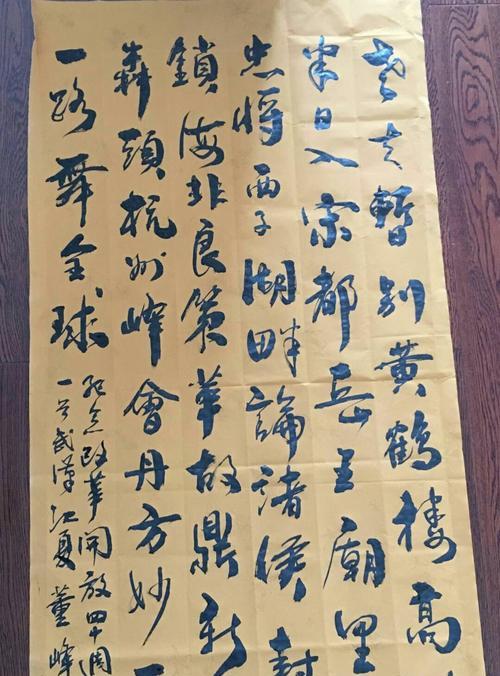 老夫暫别黄鶴楼高
半日入宗都岳王廟里
忠将西子湖畔論諸侯封
鎖海非良策革故鼎新
犇頭杭州峰會丹方妙一
一路舞全球
紀念改革開放四十週
一名武漢江夏董峰